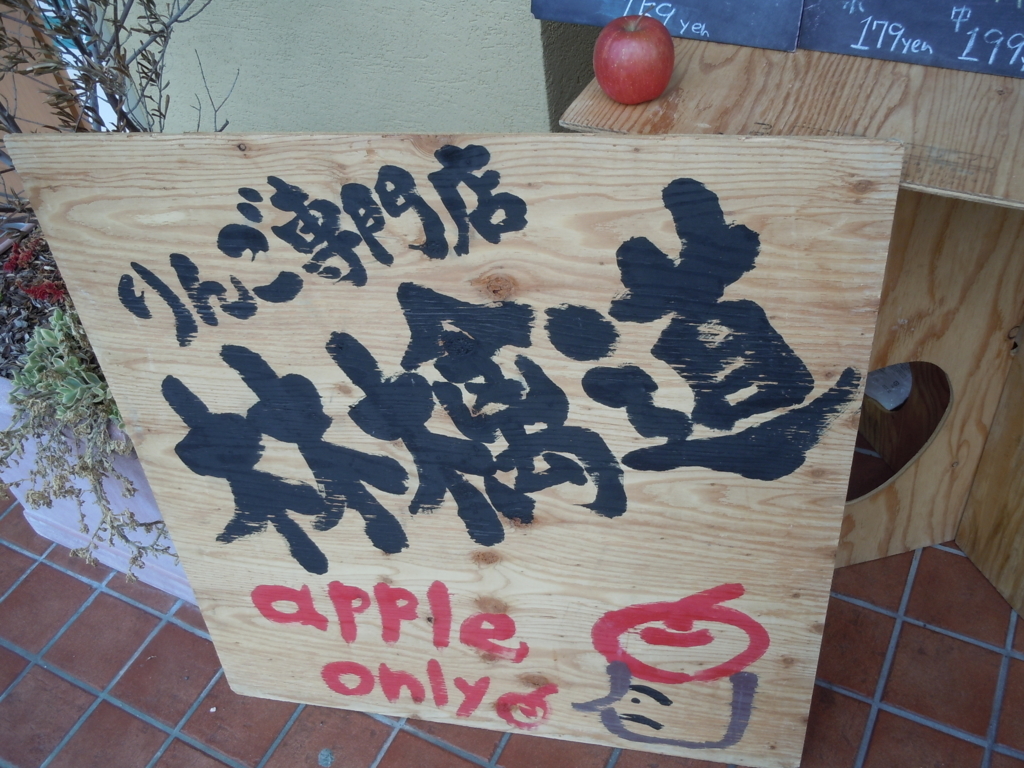 159yen
179yen
中
199
りんご専門店
林檎道
apple
only